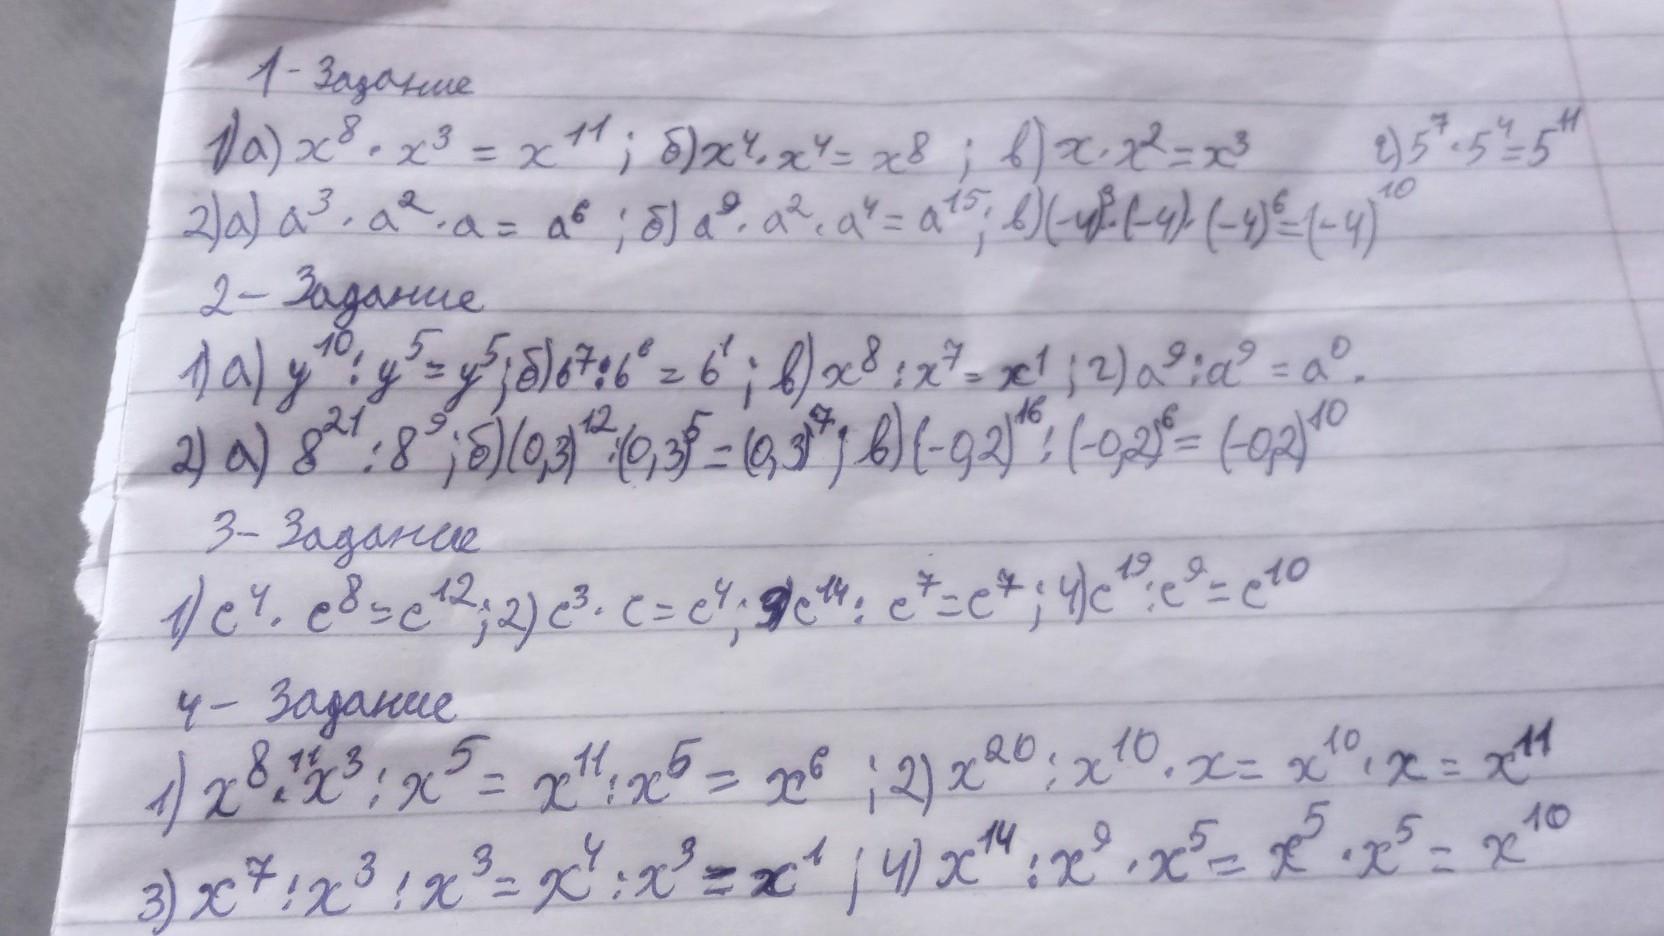 1 - Задание
1) а) x⁸ · x³ = x¹¹ ; б) x⁴ · x⁴ = x⁸ ; в) x · x² = x³ г) 5⁷ · 5⁴ = 5¹¹
2) а) a³ · a² · a = a⁶ ; б) a⁹ · a² · a⁴ = a¹⁵ ; в) (-4)³ · (-4) · (-4)⁶ = (-4)¹⁰
2 - Задание
1) а) y¹⁰ : y⁵ = y⁵ ; б) 6⁷ : 6⁶ = 6¹ ; в) x⁸ : x⁷ = x¹ ; г) a⁹ : a⁹ = a⁰.
2) а) 8²¹ : 8⁹ ; б) (0,3)¹² : (0,3)⁵ = (0,3)⁷ ; в) (-0,2)¹⁶ : (-0,2)⁶ = (-0,2)¹⁰
3 - Задание
1) c⁴ · c⁸ = c¹² ; 2) c³ · c = c⁴ ; 3) c¹⁴ : c⁷ = c⁷ ; 4) c¹⁹ : c⁹ = c¹⁰
4 - Задание
1) x⁸ ·¹¹ x³ : x⁵ = x¹¹ : x⁵ = x⁶ ; 2) x²⁰ : x¹⁰ · x = x¹⁰ · x = x¹¹
3) x⁷ : x³ : x³ = x⁴ : x³ = x¹ ; 4) x¹⁴ : x⁹ · x⁵ = x⁵ · x⁵ = x¹⁰